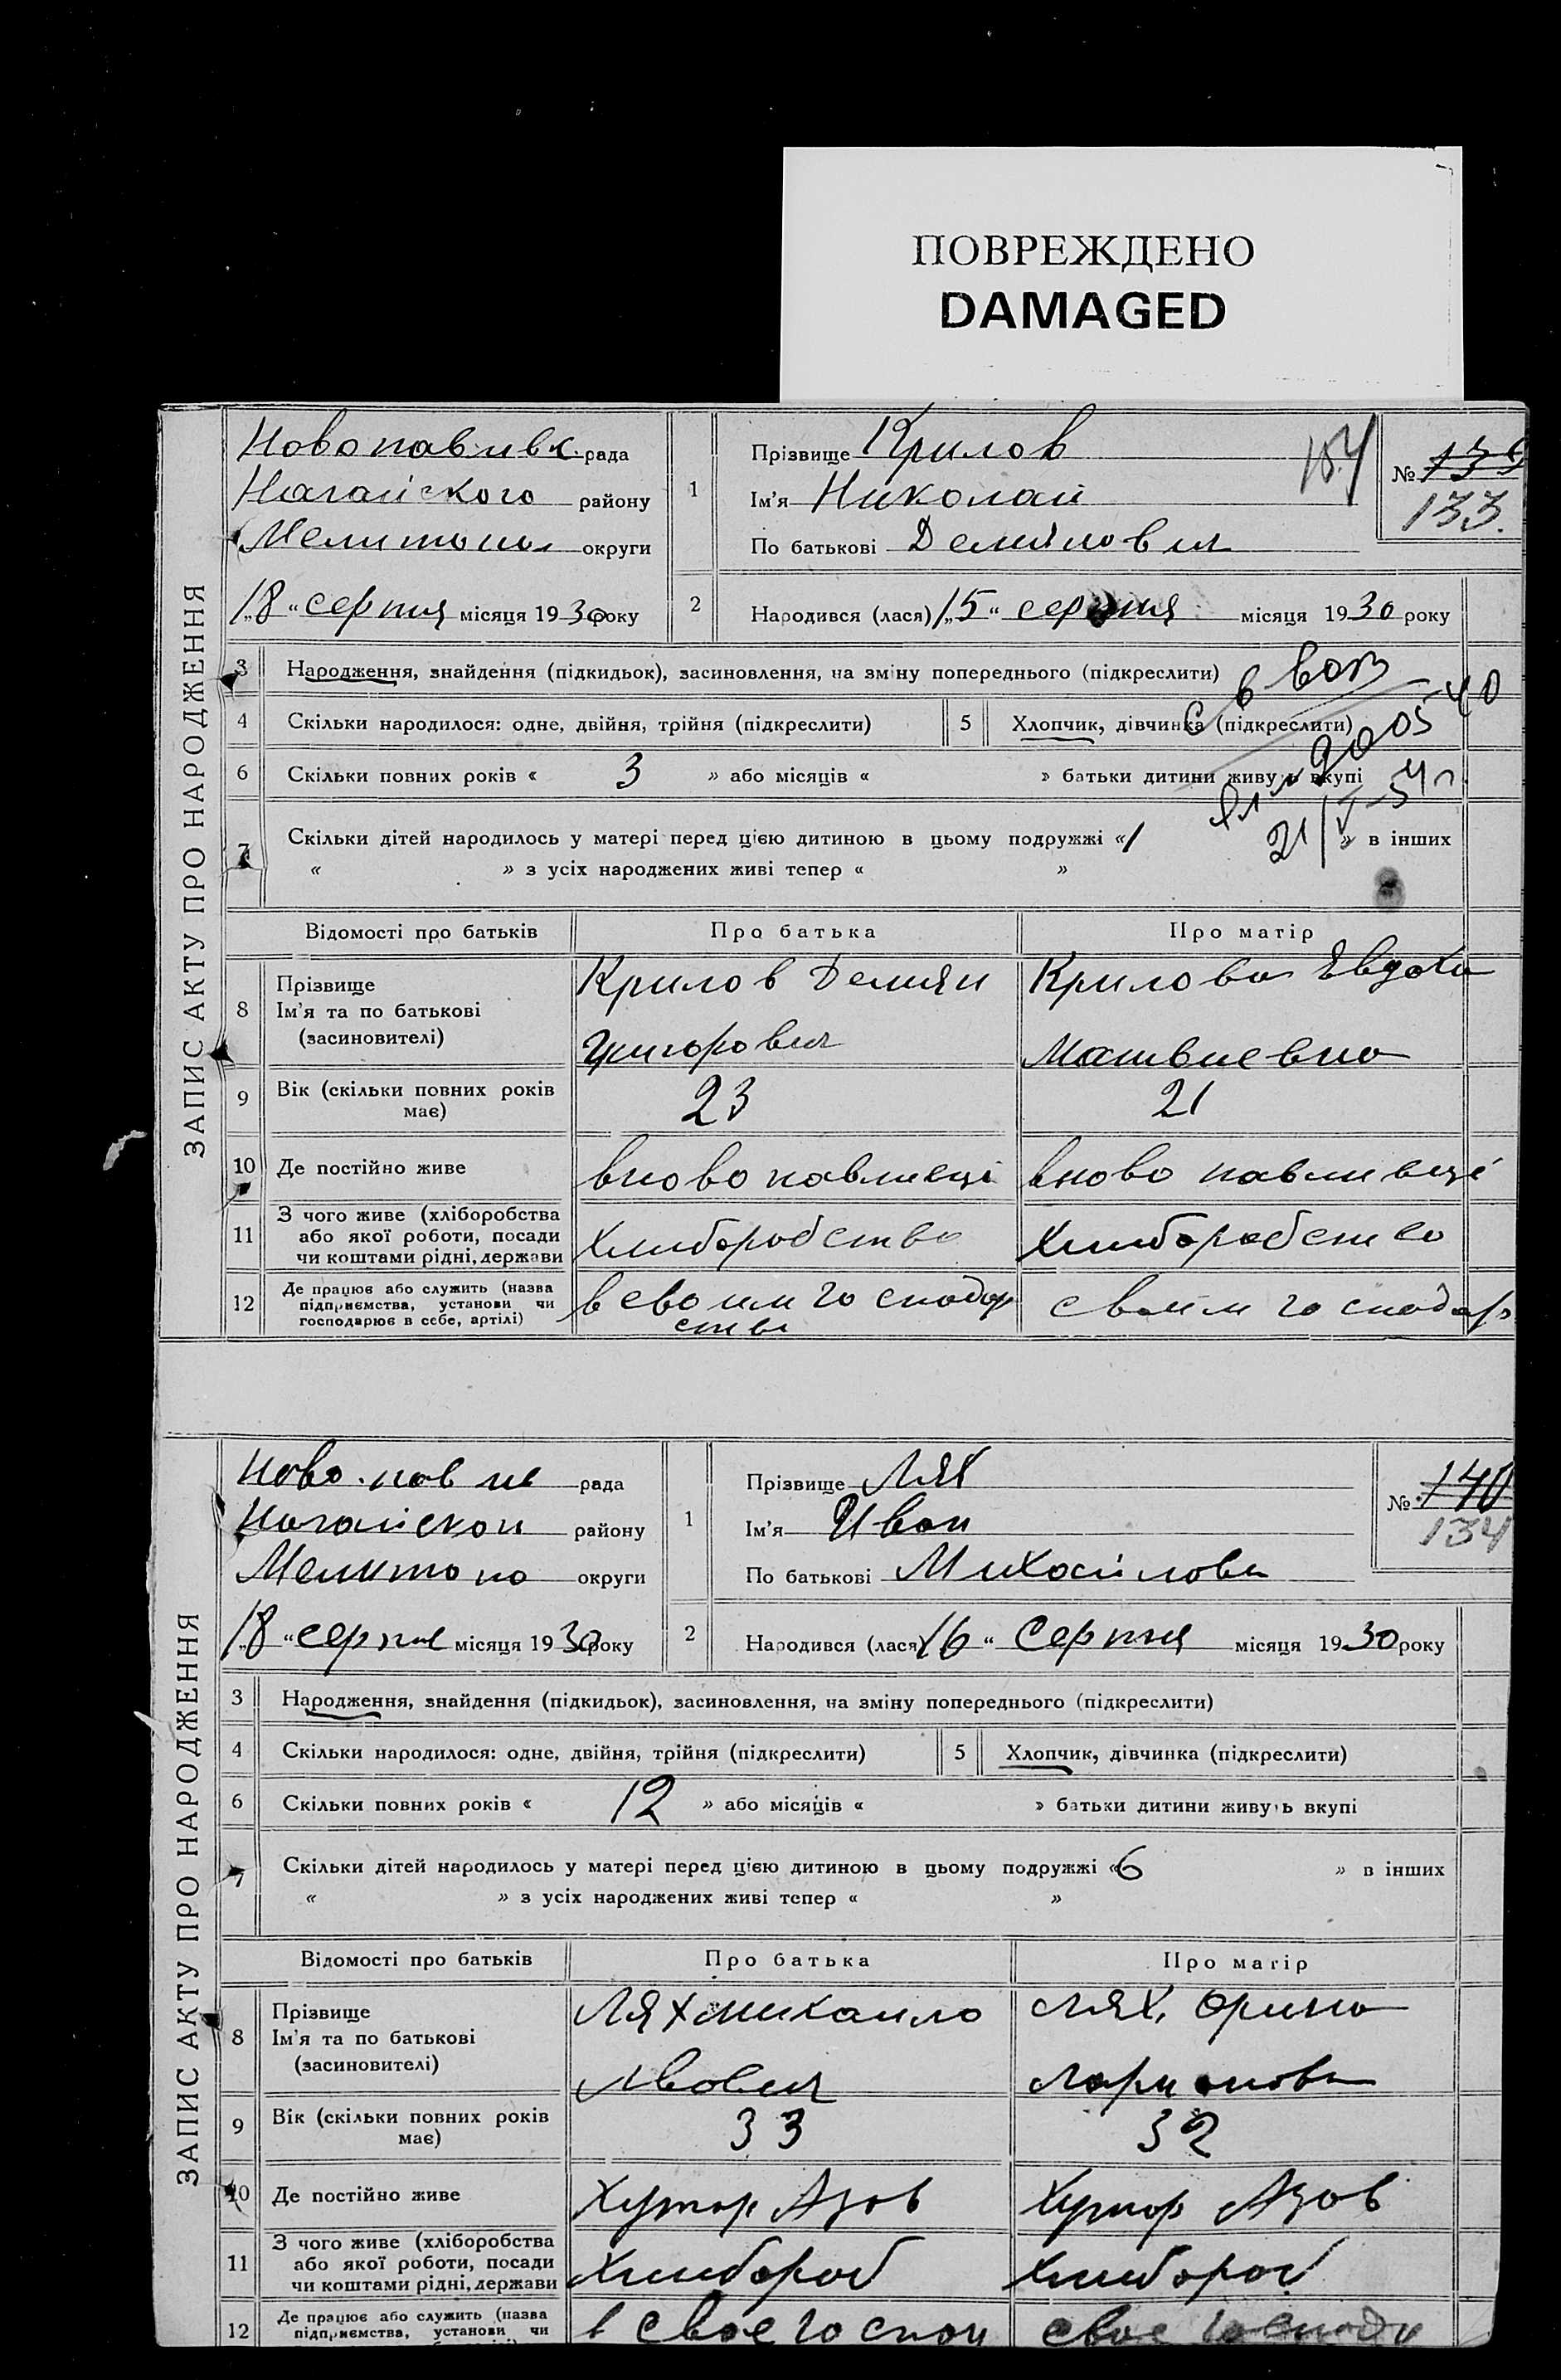 ПОВРЕЖДЕНО
DAMAGED
ЗАПИС АКТУ ПРО НАРОДЖЕННЯ
Новопавливк. рада
Нагайского району
Мелитопол округи
„18“ серпня місяця 1930 року
1
Прізвище Крилов
Ім'я Николай
По батькові Демянович
№ 139
133.
2
Народився (лася) „15“ серпня місяця 1930 року
3 Народження, знайдення (підкидьок), засиновлення, на зміну попереднього (підкреслити)
4 Скільки народилося: одне, двійня, трійня (підкреслити) 5 Хлопчик, дівчинка (підкреслити)
6 Скільки повних років « 3 » або місяців « » батьки дитини живуть вкупі
21/V-54 г.
7 Скільки дітей народилось у матері перед цією дитиною в цьому подружжі «1 » в інших
« » з усіх народжених живі тепер « »
Відомості про батьків Про батька Про матір
8 Прізвище
Ім'я та по батькові
(засиновителі)
Крилов Демян
Григорович
Крилова Евдоки
Матвиевна
9 Вік (скільки повних років має) 23 21
10 Де постійно живе вново павливци вново павливці
11 З чого живе (хліборобства
або якої роботи, посади
чи коштами рідні, держави
Хлиборобство Хлиборобство
12 Де працює або служить (назва
підприємства, установи чи
господарює в себе, артілі)
в своим господар
стві
своим господар
ЗАПИС АКТУ ПРО НАРОДЖЕННЯ
Ново-павли рада
Нагайскои району
Мелитопо округи
„18“ серпне місяця 1930 року
1
Прізвище Лях
Ім'я Иван
По батькові Михайлови
№ 140
134
2
Народився (лася) 16“ Серпня місяця 1930 року
3 Народження, знайдення (підкидьок), засиновлення, на зміну попереднього (підкреслити)
4 Скільки народилося: одне, двійня, трійня (підкреслити) 5 Хлопчик, дівчинка (підкреслити)
6 Скільки повних років « 12 » або місяців « » батьки дитини живуть вкупі
7 Скільки дітей народилось у матері перед цією дитиною в цьому подружжі «6 » в інших
« » з усіх народжених живі тепер « »
Відомості про батьків Про батька Про матір
8 Прізвище
Ім'я та по батькові
(засиновителі)
Лях михаило
Львович
Лях, Орина
Ларионовн
9 Вік (скільки повних років має) 33 32
10 Де постійно живе Хутор Азов Хутор Азов
11 З чого живе (хліборобства
або якої роботи, посади
чи коштами рідні, держави
Хлибороб Хлибороб
12 Де працює або служить (назва
підприємства, установи чи
в свое госпои свое господи